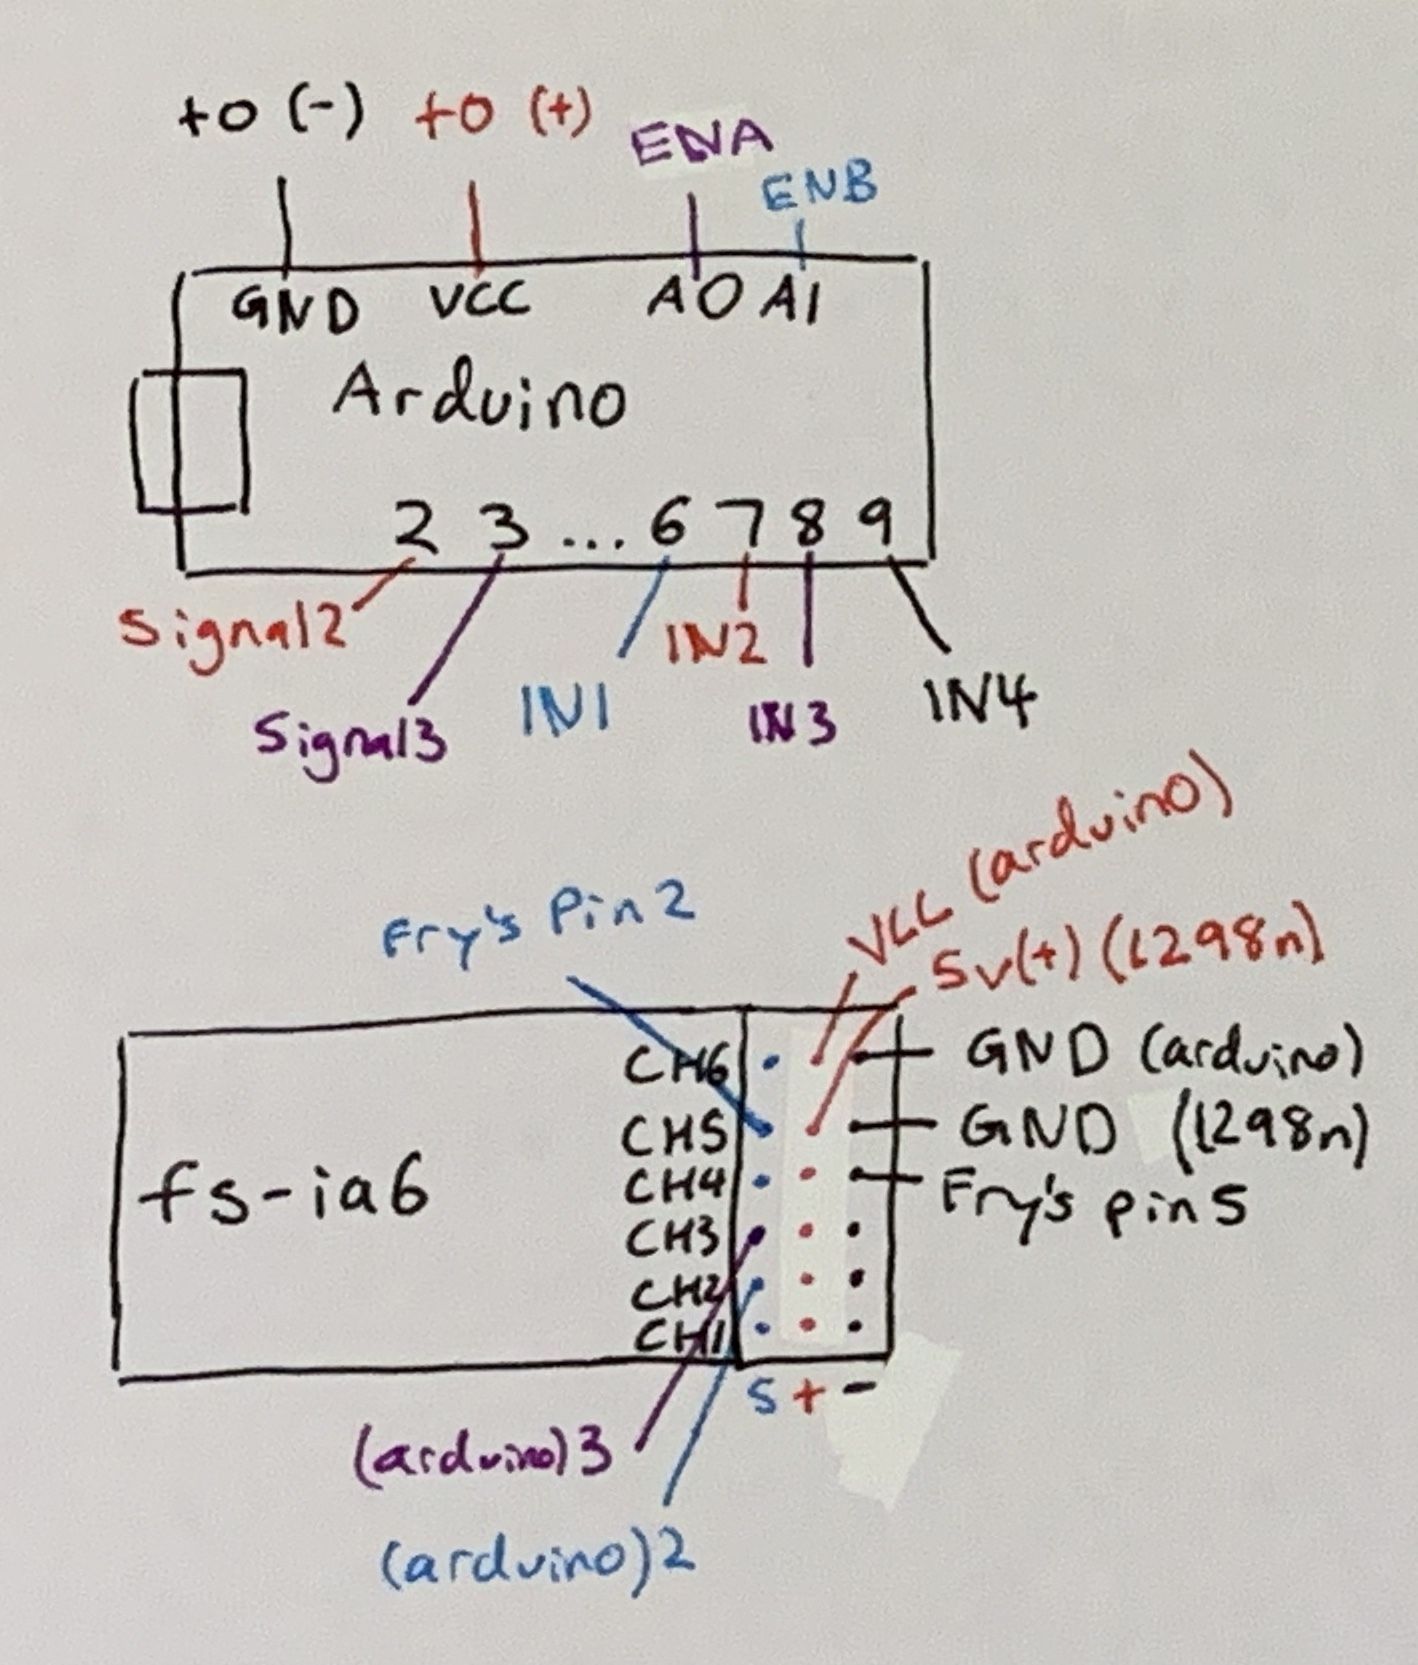 to (-) to (+) ENA
ENB
GND VCC A0 A1
Arduino
2 3 ... 6 7 8 9
Signal2 IN2
Signal3 IN1 IN3 IN4
VCC (arduino)
Fry's Pin 2
5v(+) (l298n)
CH6 GND (arduino)
CH5 GND (l298n)
fs-ia6 CH4 Fry's pin 5
CH3
CH2
CH1
S + -
(arduino)3
(arduino)2